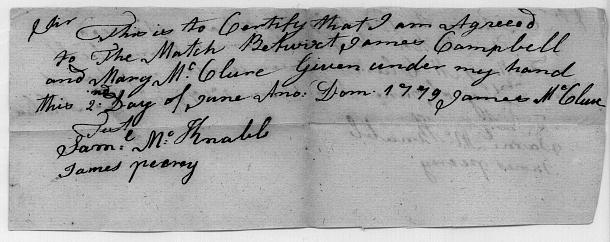 Sir This is to Certify that I am Agreeed
to The Match Betwixt James Campbell
and Mary Mc Clure Given under my hand
this 2nd Day of June Ano: Dom. 1779 James Mc Clure
Test
Saml. Mc Knabb
James pearey